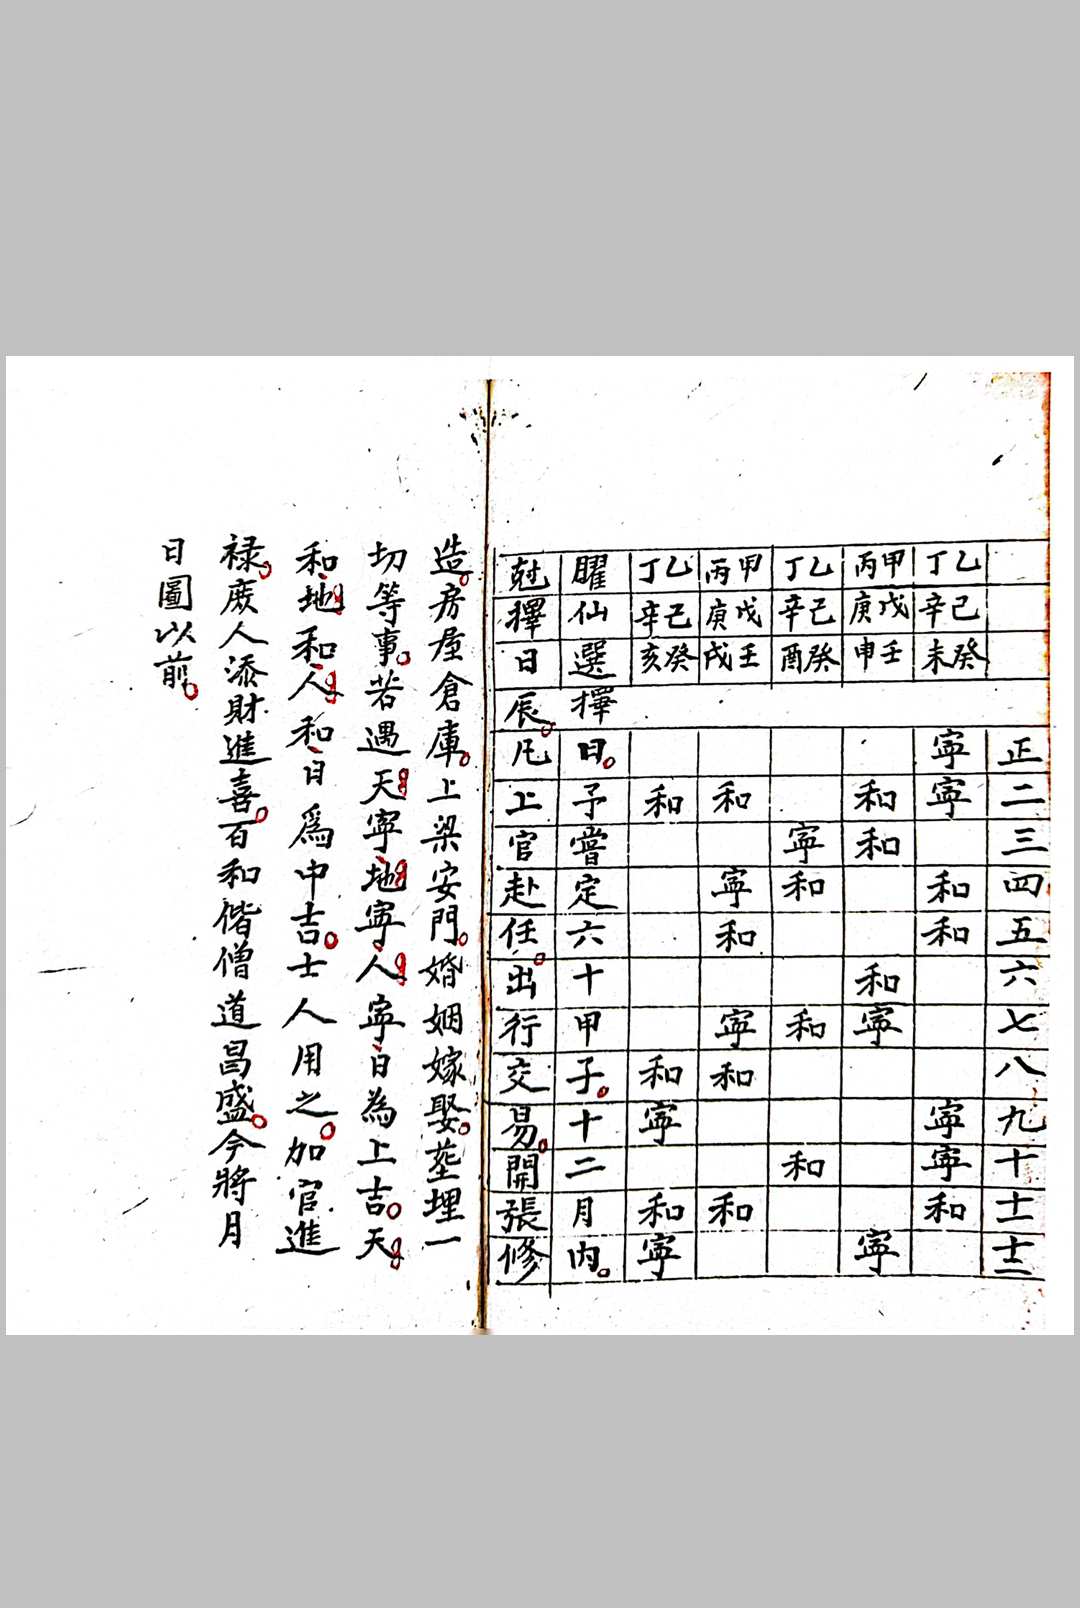 正二三四五六七八九十十一十二
乙己癸
丁辛未
寧寧和和寧寧和
甲戊壬
丙庚申
和和和寧寧
乙己癸
丁辛酉
寧和和和
甲戊壬
丙庚戌
和寧和寧和和
乙己癸
丁辛亥
和和寧和寧
矅仙選擇日。予嘗定六十甲子。十二月内。
尅擇日辰。凡上官赴任。出行交易。開張修
造。房屋倉庫。上梁安門。婚姻嫁娶。塟埋一
切等事。若遇天寧地寧人寧日為上吉。天
和地和人和日爲中吉。士人用之。加官進
禄。庶人添財進喜。百和偕僧道昌盛。今將月
日圖以前。